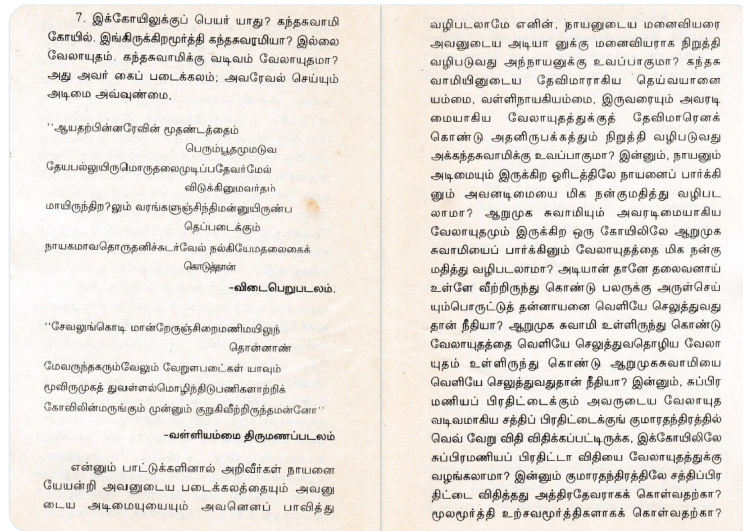 7. இக்கோயிலுக்குப் பெயர் யாது? கந்தசுவாமி
கோயில். இங்கிருக்கிறமூர்த்தி கந்தசுவரமியா? இல்லை
வேலாயுதம். கந்தசுவாமிக்கு வடிவம் வேலாயுதமா?
அது அவர் கைப் படைக்கலம்; அவரேவல் செய்யும்
அடிமை அவ்வுண்மை,
‘‘ஆயதற்பின்னரேவின் மூதண்டத்தைம்
பெரும்பூதமுமடுவ
தேயபல்லுயிருமொருதலைமுடிப்பதேவர்மேல்
விடுக்கினுமவர்தம்
மாயிருந்திற?லும் வரங்களுஞ்சிந்திமன்னுயிருண்ப
தெப்படைக்கும்
நாயகமாவதொருதனிச்சுடர்வேல் நல்கியேமதலைகைக்
கொடுத்தான்
-விடைபெறுபடலம்.
‘‘சேவலுங்கொடி மான்றேருஞ்சிறைமணிமயிலுந்
தொன்னாண்
மேவருந்தகரும்வேலும் வேறுளபடைகள் யாவும்
மூவிருமுகத் துவள்ளல்மொழிந்திடுபணிகளாற்றிக்
கோவிலின்மருங்கும் முன்னும் குறுகிவீற்றிருந்தமன்னோ’’
-வள்ளியம்மை திருமணப்படலம்
என்னும் பாட்டுக்களினால் அறிவீர்கள் நாயனை
யேயன்றி அவனுடைய படைக்கலத்தையும் அவனு
டைய அடிமையுயையும் அவனெனப் பாவித்து
வழிபடலாமே எனின், நாயனுடைய மனைவியரை
அவனுடைய அடியா னுக்கு மனைவியராக நிறுத்தி
வழிபடுவது அந்நாயனுக்கு உவப்பாகுமா? கந்தசு
வாமியினுடைய தேவிமாராகிய தெய்வயானை
யம்மை, வள்ளிநாயகியம்மை, இருவரையும் அவரடி
மையாகிய வேலாயுதத்துக்குத் தேவிமாரெனக்
கொண்டு அதனிருபக்கத்தும் நிறுத்தி வழிபடுவது
அக்கந்தசுவாமிக்கு உவப்பாகுமா? இன்னும், நாயனும்
அடிமையும் இருக்கிற ஓரிடத்திலே நாயனைப் பார்க்கி
னும் அவனடிமையை மிக நன்குமதித்து வழிபட
லாமா? ஆறுமுக சுவாமியும் அவரடிமையாகிய
வேலாயுதமும் இருக்கிற ஒரு கோயிலிலே ஆறுமுக
சுவாமியைப் பார்க்கினும் வேலாயுதத்தை மிக நன்கு
மதித்து வழிபடலாமா? அடியான் தானே தலைவனாய்
உள்ளே வீற்றிருந்து கொண்டு பலருக்கு அருள்செய்
யும்பொருட்டுத் தன்னாயனை வெளியே செலுத்துவது
தான் நீதியா? ஆறுமுக சுவாமி உள்ளிருந்து கொண்டு
வேலாயுதத்தை வெளியே செலுத்துவதொழிய வேலா
யுதம் உள்ளிருந்து கொண்டு ஆறுமுகசுவாமியை
வெளியே செலுத்துவதுதான் நீதியா? இன்னும், சுப்பிர
மணியப் பிரதிட்டைக்கும் அவருடைய வேலாயுத
வடிவமாகிய சத்திப் பிரதிட்டைக்குங் குமாரதந்திரத்தில்
வெவ் வேறு விதி விதிக்கப்பட்டிருக்க, இக்கோயிலிலே
சுப்பிரமணியப் பிரதிட்டா விதியை வேலாயுதத்துக்கு
வழங்கலாமா? இன்னும் குமாரதந்திரத்திலே சத்திப்பிர
திட்டை விதித்தது அத்திரதேவராகக் கொள்வதற்கா?
மூலமூர்த்தி உற்சவமூர்த்திகளாகக் கொள்வதற்கா?